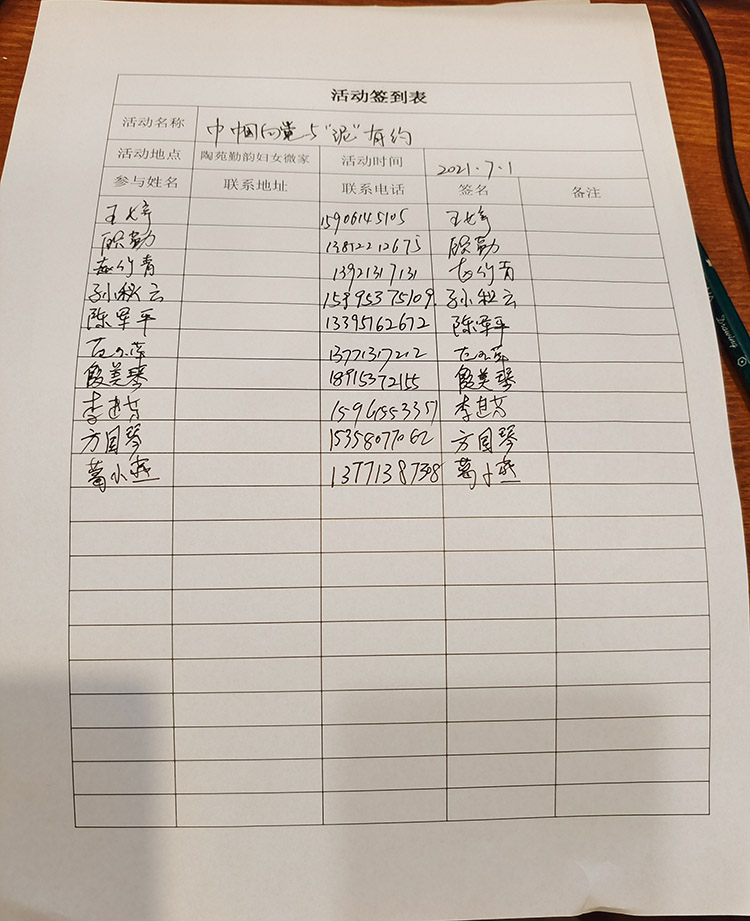 活动签到表
活动名称 巾帼向党与"泥"有约
活动地点 陶苑勤韵妇女微家 活动时间 2021.7.1
参与姓名 联系地址 联系电话 签名 备注
15906145105
13812212675
13921317131
孙秋云 15395375109 孙秋云
陈军平 13395762672 陈军平
13771317212
殷美琴 18915372155 殷美琴
李进芳 15961553351 李进芳
方国琴 15358077062 方国琴
葛小燕 13771387308 葛小燕